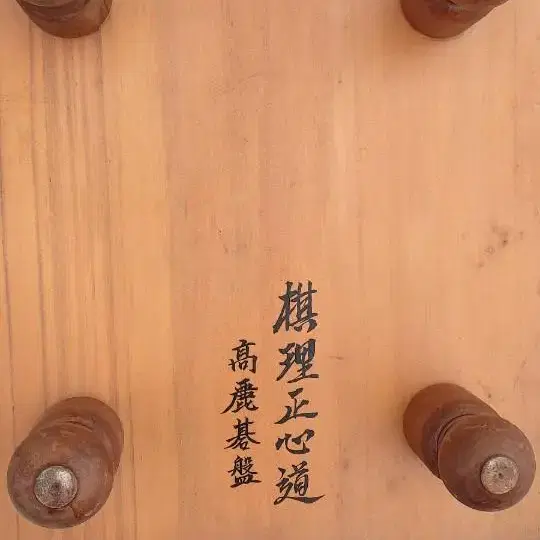 棋理正心道
高麗碁盤